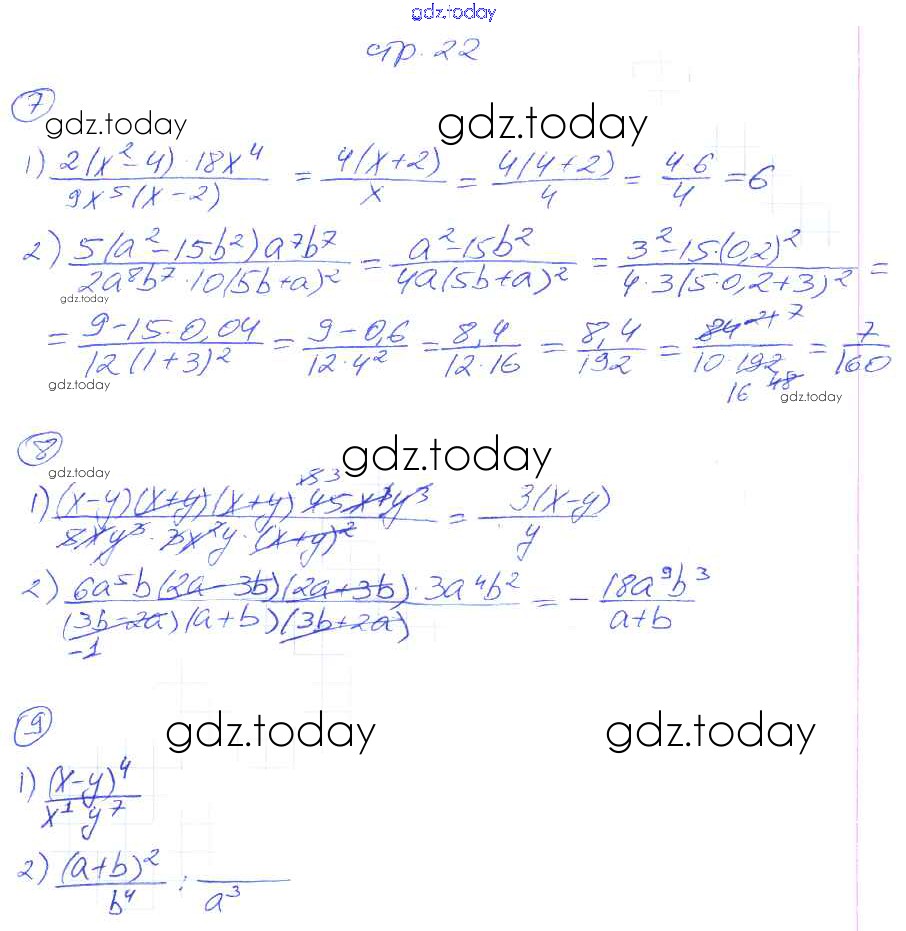 gdz.today
стр. 22
7
gdz.today gdz.today
1) 2(x² - 4) · 18x⁴ / 9x⁵(x - 2) = 4(x + 2) / x = 4(4 + 2) / 4 = 4·6 / 4 = 6
2) 5(a² - 15b²)a⁷b⁷ / 2a⁸b⁷ · 10(5b + a)² = a² - 15b² / 4a(5b + a)² = 3² - 15·(0,2)² / 4·3(5·0,2 + 3)² =
gdz.today
= 9 - 15·0,04 / 12(1 + 3)² = 9 - 0,6 / 12·4² = 8,4 / 12·16 = 8,4 / 192 = 84 21 7 / 10·192 48 16 = 7 / 160
gdz.today gdz.today
8
gdz.today gdz.today
1) (x - y)(x + y)(x + y) 45x³y³ / 8xy³ · 3x²y · (x + y)² = 3(x - y) / y
2) 6a⁵b(2a - 3b)(2a + 3b) · 3a⁴b² / (3b - 2a)(a + b)(3b + 2a) = - 18a⁹b³ / a + b
-1
9
gdz.today gdz.today
1) (x - y)⁴ / x¹ y⁷
2) (a + b)² / b⁴ : / a³